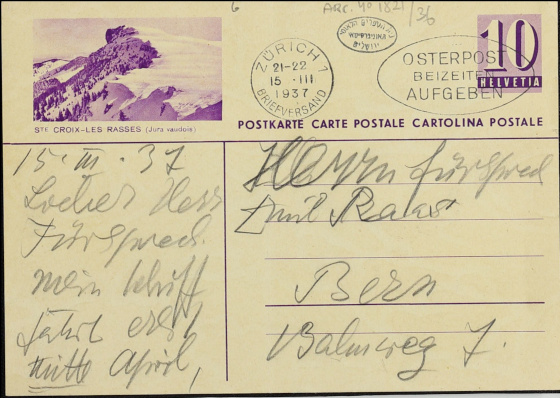 G
Arc. 40 1821/36
ZÜRICH 1
21-22
15. III
1937
BRIEFVERSAND
OSTERPOST
BEIZEITEN
AUFGEBEN
10
HELVETIA
STE CROIX-LES RASSES (Jura vaudois)
POSTKARTE CARTE POSTALE CARTOLINA POSTALE
15. III. 37
Lieber Herr
Fürsprech.
Mein Schiff
fährt erst
Mitte April,
Herrn Fürsprech
Emil Raas
Bern
Balmweg 7.